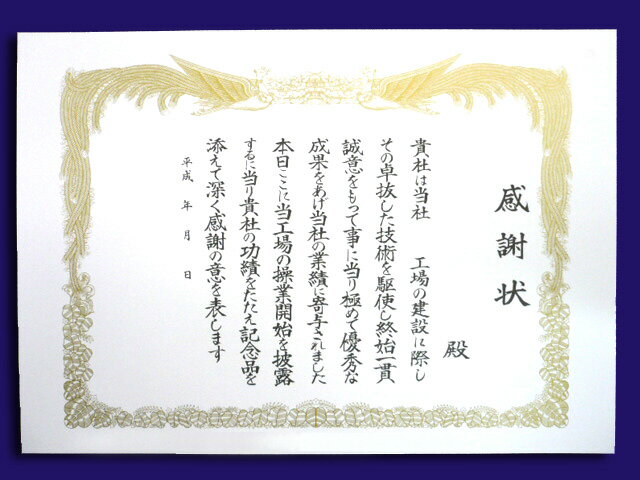 感謝状
殿
貴社は当社 工場の建設に際し
その卓抜した技術を駆使し終始一貫
誠意をもって事に当り極めて優秀な
成果をあげ当社の業績に寄与されました
本日ここに当工場の操業開始を披露
するに当り貴社の功績をたたえ記念品を
添えて深く感謝の意を表します
平成 年 月 日